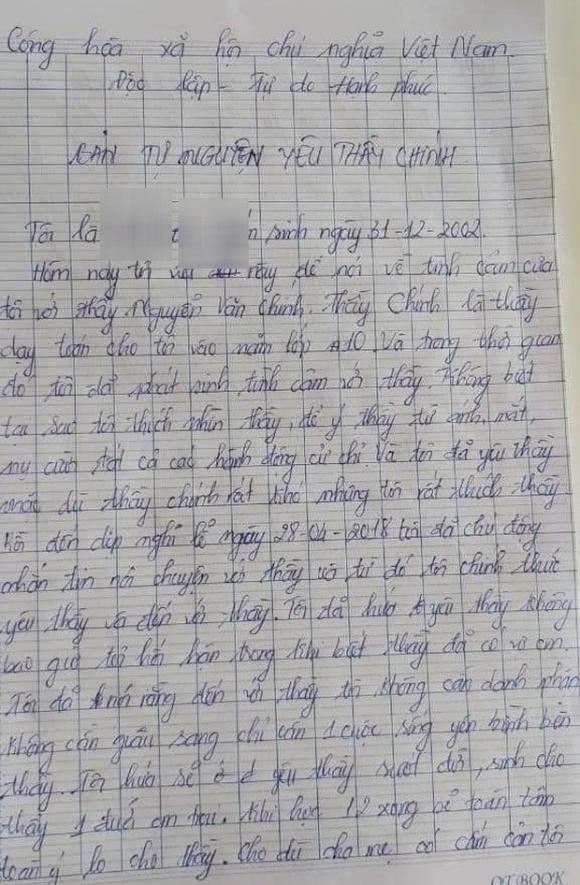 Cộng hòa xã hội chủ nghĩa Việt Nam.
Độc lập - Tự do Hạnh phúc
BẢN TỰ NGUYỆN YÊU THẦY CHINH
Tôi là sinh ngày 31-12-2002.
Hôm nay tôi này để nói về tình cảm của
tôi với thầy Nguyễn Văn Chinh. Thầy Chinh là thầy
dạy toán cho tôi vào năm lớp 10. Và trong thời gian
đó tôi đã phát sinh tình cảm với thầy. Không biết
tại sao tôi thích nhìn thầy, để ý thầy từ ánh mắt,
nụ cười tất cả các hành động cử chỉ. Và tôi đã yêu thầy
mặc dù thầy chinh rất khó nhưng tôi rất thích thầy
đến dịp nghỉ lễ ngày 28-04-2018 tôi đã chủ động
nhắn tin nói chuyện với thầy và từ đó tôi chính thức
yêu thầy và đến với thầy. Tôi đã hứa yêu thầy không
bao giờ tôi hối hận trong khi biết thầy đã có vợ con.
Tôi đã nói rằng đến với thầy tôi không cần danh phận
không cần giàu sang chỉ cần 1 cuộc sống yên bình bên
thầy. Tôi hứa sẽ yêu thầy suốt đời, sinh cho
thầy 1 đứa con trai. Khi học 12 xong sẽ toàn tâm
toàn ý lo cho thầy. Cho dù cha mẹ có cấm cản tôi